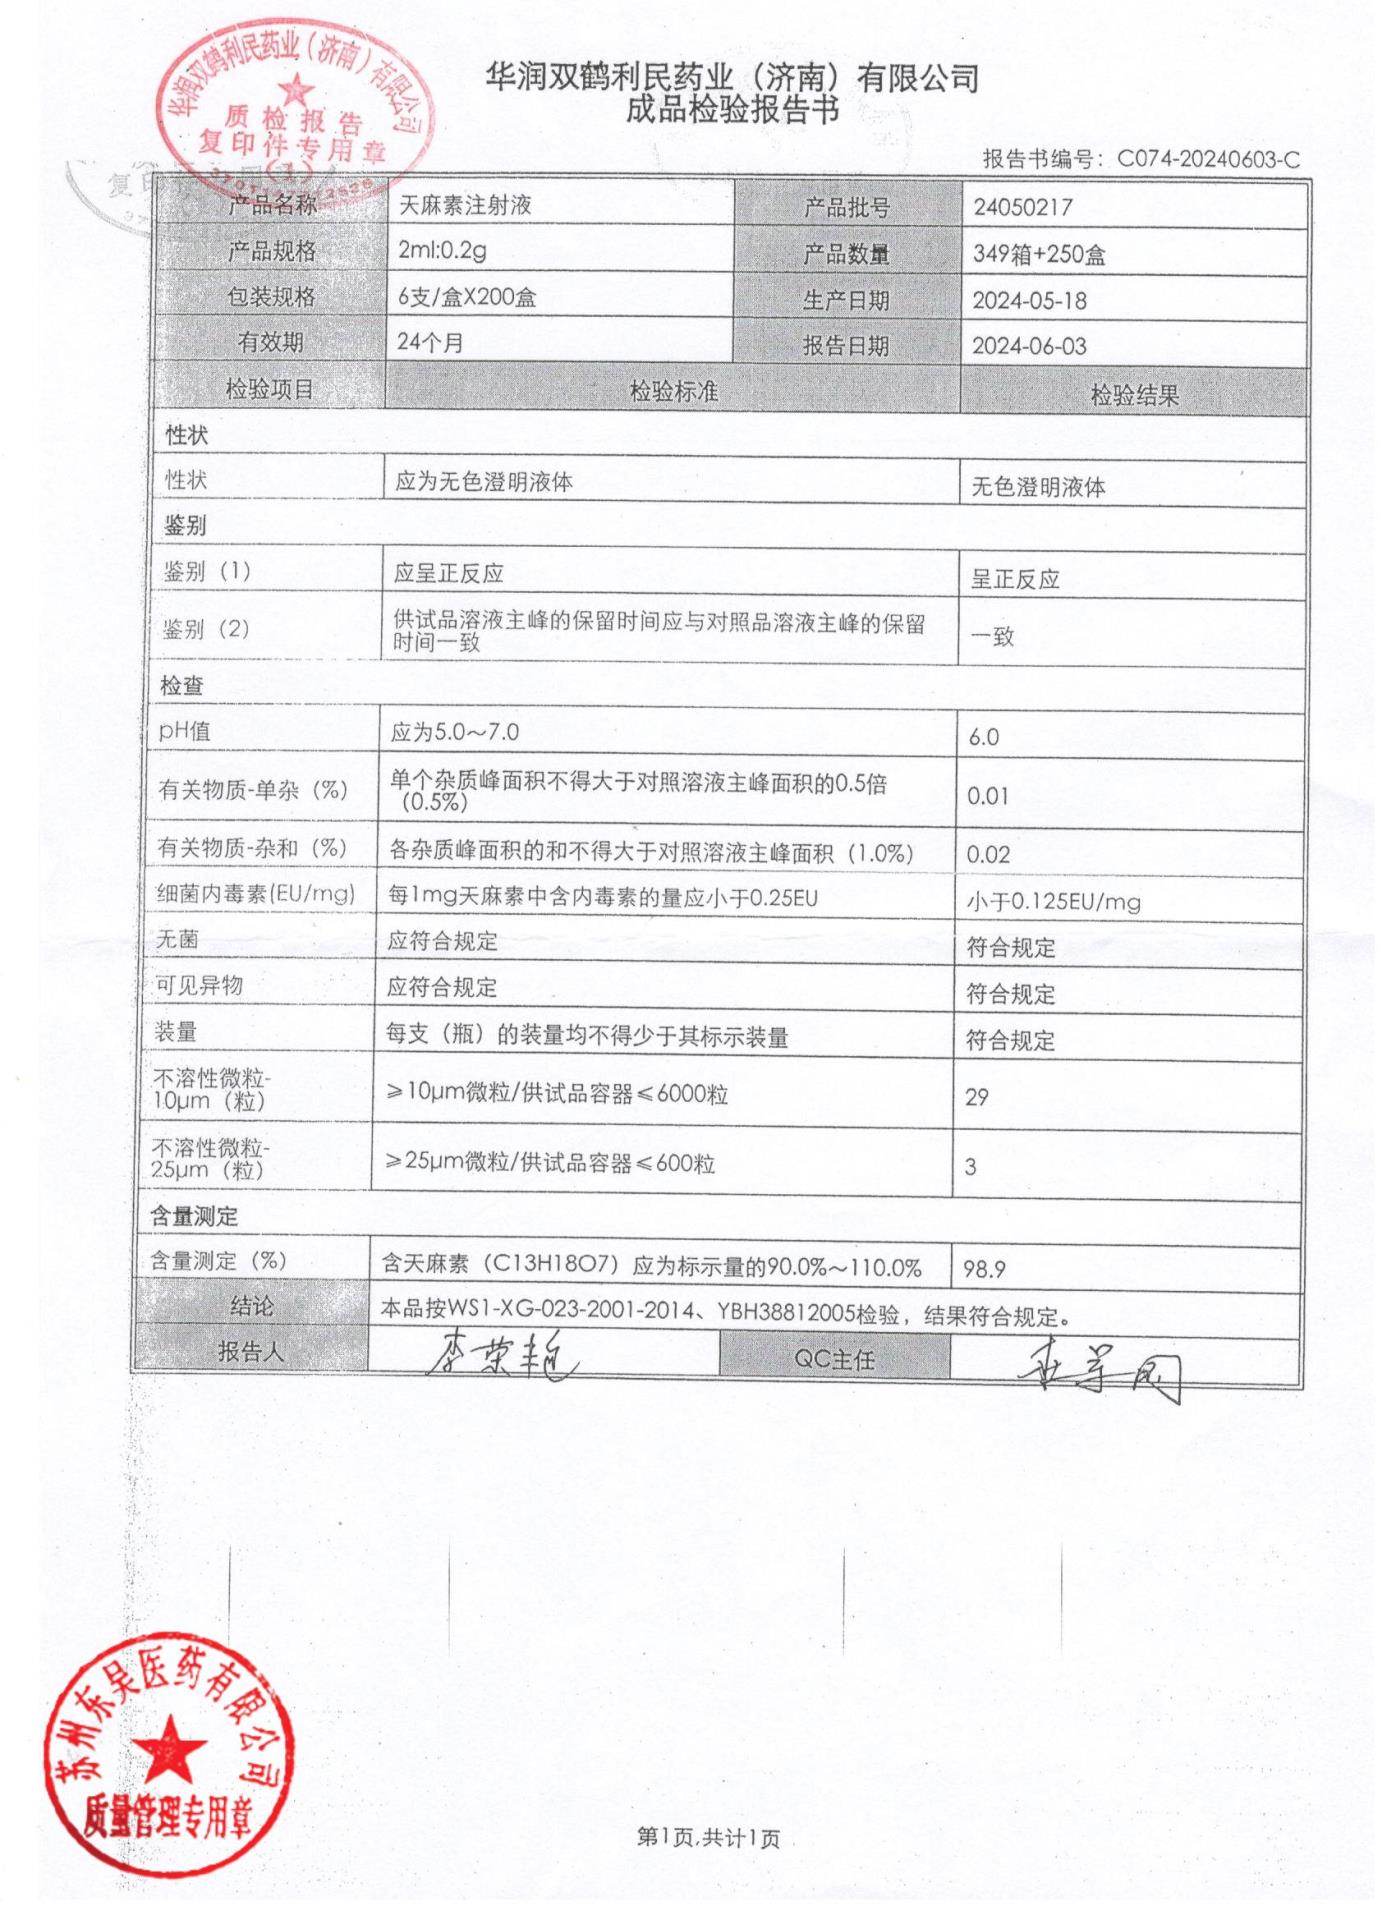 华润双鹤利民药业（济南）有限公司
成品检验报告书
华润双鹤利民药业（济南）有限公司
质检报告
复印件专用章
（1）
报告书编号：C074-20240603-C
产品名称 天麻素注射液 产品批号 24050217
产品规格 2ml:0.2g 产品数量 349箱+250盒
包装规格 6支/盒X200盒 生产日期 2024-05-18
有效期 24个月 报告日期 2024-06-03
检验项目 检验标准 检验结果
性状
性状 应为无色澄明液体 无色澄明液体
鉴别
鉴别（1） 应呈正反应 呈正反应
鉴别（2） 供试品溶液主峰的保留时间应与对照品溶液主峰的保留
时间一致 一致
检查
pH值 应为5.0～7.0 6.0
有关物质-单杂（%） 单个杂质峰面积不得大于对照溶液主峰面积的0.5倍
（0.5%） 0.01
有关物质-杂和（%） 各杂质峰面积的和不得大于对照溶液主峰面积（1.0%） 0.02
细菌内毒素(EU/mg) 每1mg天麻素中含内毒素的量应小于0.25EU 小于0.125EU/mg
无菌 应符合规定 符合规定
可见异物 应符合规定 符合规定
装量 每支（瓶）的装量均不得少于其标示装量 符合规定
不溶性微粒-
10μm（粒） ≥10μm微粒/供试品容器≤6000粒 29
不溶性微粒-
25μm（粒） ≥25μm微粒/供试品容器≤600粒 3
含量测定
含量测定（%） 含天麻素（C13H18O7）应为标示量的90.0%～110.0% 98.9
结论 本品按WS1-XG-023-2001-2014、YBH38812005检验，结果符合规定。
报告人 李荣艳 QC主任
苏州东吴医药有限公司
质量管理专用章
第1页,共计1页